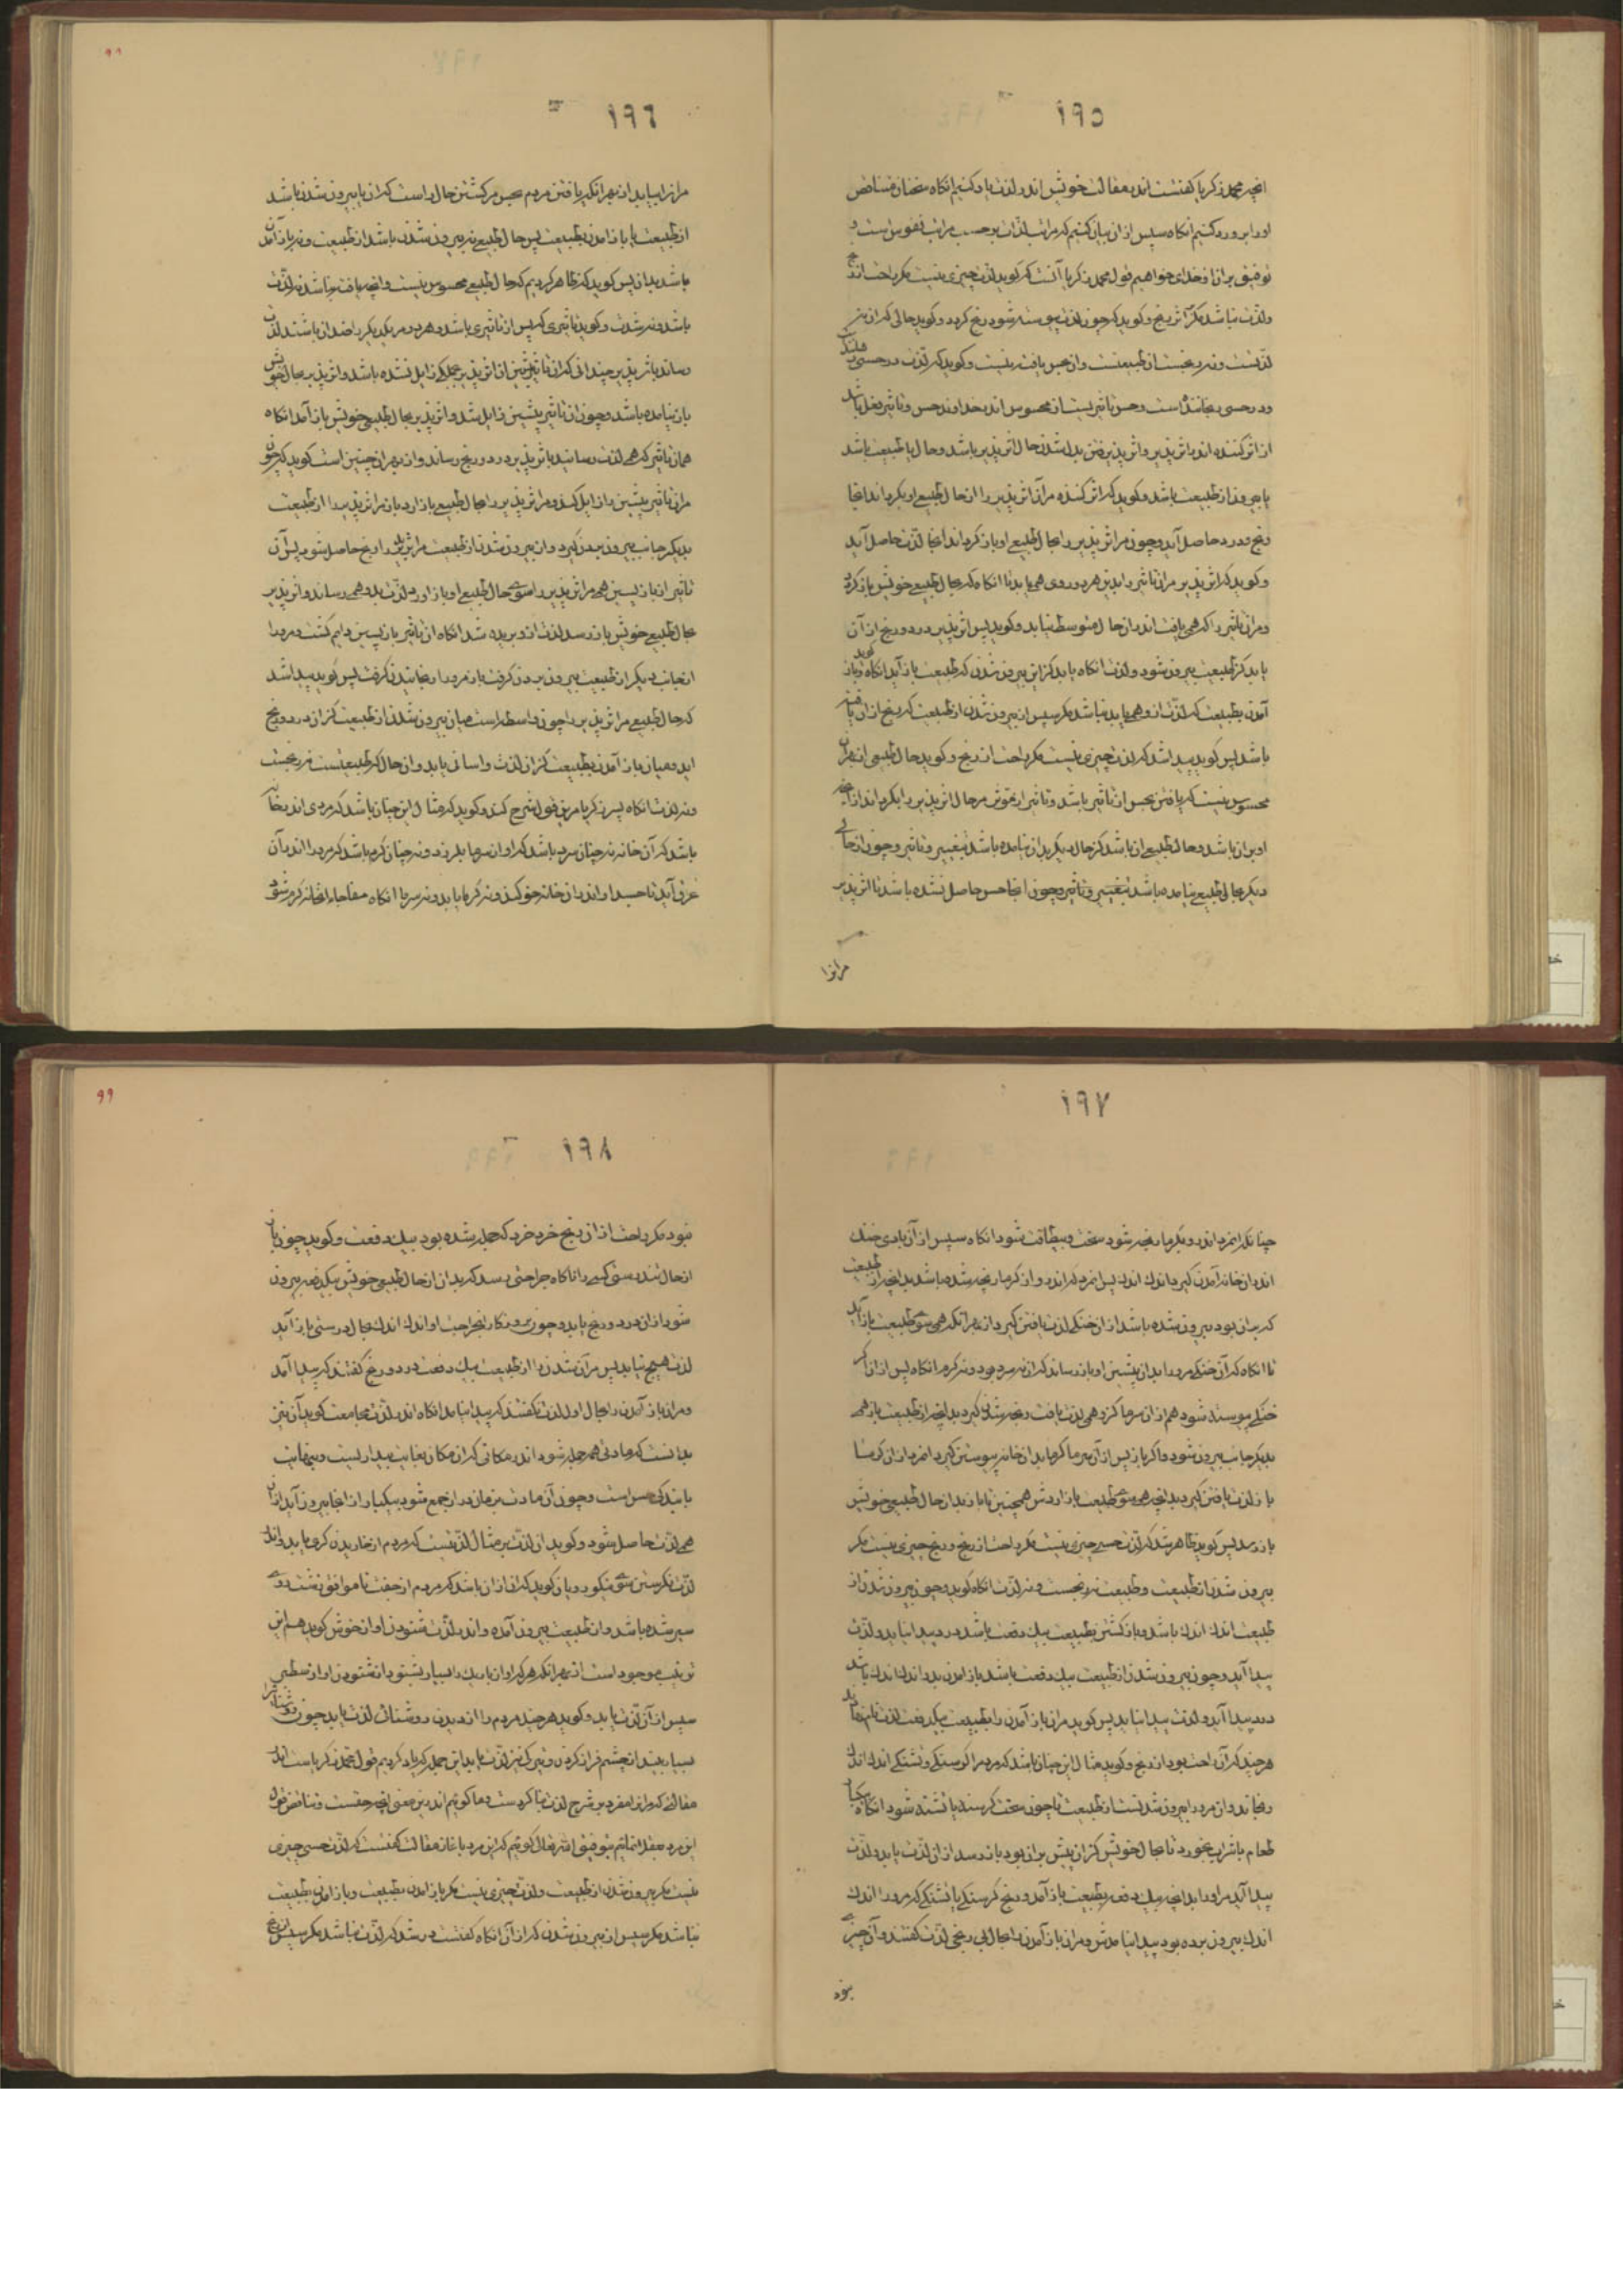 ١٩٥
انچه محمد زکریا گفتست اندر مقالت خویش اندر لذت یاد کنیم انگاه سخنان متناقض
اورا برو رد کنیم انگاه سپس از ان بیان کنیم که مراتب لذات بر حسب مراتب نفوس است و
توفیق بر ان از خدای خواهیم قول محمد زکریا آنست که گوید لذت چیزی نیست مگر راحت از رنج
ولذت نباشد مگر بر اثر رنج و گوید که چون لذت پیوسته شود رنج گردد و گوید حالی که ان نه
لذتست و نه رنجست از طبیعتست و ان بحس یافته نیست و گوید که لذت حسی رهاننده است
و درد حسی رنجاننده است و حس تاثیریست از محسوس اندر خداوند حس و تاثیر فعل باشد
از اثر کننده اندر اثر پذیر و اثر پذیرفتن بدل شدن حال اثر پذیر باشد و حال یا طبیعت باشد
یا بیرون از طبیعت باشد و گوید که اثر کننده مر آن اثر پذیر را از حال طبیعی او بگرداند انجا
رنج و درد حاصل آید و چون مر اثر پذیر را بحال طبیعی او باز گرداند انجا لذت حاصل آید
و گوید که اثر پذیر مر ان تاثیر را بدین هر دو روی همی یابد تا انگاه که بحال طبیعی خویش باز گردد
و مر ان تاثیر را که همی یافت اندر ان حال متوسط نیابد و گوید پس اثر پذیر درد و رنج از آن
یابد کز طبیعت بیرون شود و لذت انگاه یابد کز این بیرون شدن که طبیعت باز آید انگاه گوید و باز
آمدن بطبیعت که لذت از و همی یابد نباشد مگر سپس از بیرون شدن از طبیعت که رنج از ان یافته
باشد پس گوید پیدا شد که لذت چیزی نیست مگر راحت از رنج و گوید حال طبیعی از بهر ان
محسوس نیست که یافتن بحس از تاثیر باشد و تاثیر از مؤثر مر حال اثر پذیر را بگرداند از انچه
او بران باشد و حال طبیعی ان باشد کز حال دیگر بدان نیامده باشد بتغییر و تاثیر و چون از حالی
دیگر بحال طبیعی نیامده باشد بتغییر و تاثیر و چون انجا حس حاصل نشده باشد تا اثر پذیر
مرانرا
٩٨
١٩٦
مرانرا بیابد از بهر انکه یافتن مردم بحس مر گشتن حال راست که ان یا بیرون شدن باشد
از طبیعت یا باز امدن بطبیعت پس حال طبیعی نه بیرون شدن باشد از طبیعت و نه باز آمدن
باشد بدان پس گوید که ظاهر کردیم که حال طبیعی محسوس نیست و انچه یافته نباشد نه لذت
باشد و نه شدت و گوید تاثیری که پس از تاثیری باشد و هر دو مر یکدیگر را ضدان باشند لذت
رساند باثر پذیر چندانی که ان تاثیر پیشین از اثر پذیر بجملگی زایل نشده باشد و اثر پذیر بحال خویش
باز نیامده باشد و چون ان تاثیر پیشین زایل شد و اثر پذیر بحال طبیعی خویش باز آمد انگاه
همان تاثیر که همی لذت رسانید باثر پذیر درد و رنج رساند و از بهر ان چنین است گوید که چون
مر ان تاثیر پیشین را زایل کند و مر اثر پذیر را بحال طبیعی باز ارد باز مر اثر پذیر را از طبیعت
بدیگر جانب بیرون بردن گیرد و از بیرون شدن از طبیعت مر اثر پذیر را رنج حاصل شود پس آن
تاثیر از باز پسین همی مر اثر پذیر را سوی حال طبیعی او باز اورد و لذت بدو همی رساند و اثر پذیر
بحال طبیعی خویش باز رسد لذت از و بریده شد انگاه ان تاثیر باز پسین دایم گشت و مرورا
از جانب دیگر از طبیعت بیرون بردن گرفت باز مرورا رنجانیدن گرفت پس گوید پیدا شد
که حال طبیعی مر اثر پذیر را چون واسطه است میان بیرون شدن از طبیعت کز ان درد و رنج
آید و میان باز آمدن بطبیعت کز ان لذت و اسانی یابد و ان حال که طبیعتست نه رنجست
و نه لذت انگاه پسر زکریا مرین قول را شرح کند و گوید که مثال این چنان باشد که مردی اندر خانه
باشد که آن خانه نه چنان سرد باشد که او از سرما بلرزد و نه چنان گرم باشد که مرورا اندر آن
عرق آید تا جسد او اندر ان خانه خو کند و نه گرما یابد و نه سرما انگاه مفاجاء انخانه گرم شود
١٩٧
چنانکه انمرد اندرو بگرما رنجه شود سخت و بیطاقت شود انگاه سپس از آن بادی خنک
اندر ان خانه آمدن گیرد اندک اندک پس انمرد که اندرو از گرما رنجه شده باشد بدانچه از طبیعت
که بران بود بیرون شده باشد از ان خنکی لذت یافتن گیرد از بهر انکه همی سوی طبیعت باز آید
تا انگاه که آن خنکی مرورا بدان پیشین او باز رساند که ان نه سرد بود و نه گرم انگاه پس از ان اگر
خنکی پیوسته شود هم از ان سرما کزو همی لذت یافت رنجه شدن گیرد بدانچه از طبیعت باز همی
بدیگر جانب بیرون شود و اگر باز پس از آن سرما گرما بدان خانه پیوستن گیرد انمرد از ان گرما
باز لذت یافتن گیرد بدانچه همی سوی طبیعت باز اردش همچنین تا باز بدان حال طبیعی خویش
باز رسد پس گوید ظاهر شد که لذت حسی چیزی نیست مگر راحت از رنج و رنج چیزی نیست مگر
بیرون شدن از طبیعت و طبیعت نه رنجست و نه لذت انگاه گوید و چون بیرون شدن از
طبیعت اندک اندک باشد و باز گشتن بطبیعت بیک دفعت باشد درد پیدا نیاید و لذت
پیدا آید و چون بیرون شدن از طبیعت بیک دفعت باشد باز امدن بدو اندک اندک باشد
درد پیدا آید و لذت پیدا نیاید پس گوید مر ان باز آمدن را بطبیعت بیکدفعت لذت نام نهادند
هر چند که آن راحت بود از رنج و گوید مثال این چنان باشد که مردم را گرسنگی و تشنگی اندک اندک
رنجاند و ان مرورا بیرون شدنست از طبیعت تا چون سخت گرسنه یا تشنه شود انگاه بیکبار
طعام یا شراب بخورد تا بحال خویش کز ان پیش بر ان بود باز رسد از ان لذت یابد و لذت
پیدا آید مرورا بدانچه بیک دفعه بطبیعت باز آمد و رنج گرسنگی یا تشنگی که مرورا اندک
اندک بیرون برده بود پیدا نیامدش و مر ان باز آمدن را بحال بی رنجی لذت گفتند و آن چیزی
نبود
٩٩
١٩٨
نبود مگر راحت از ان رنج خرد خرد که جمله شده بود بیک دفعت و گوید چون باز
از حال تندرستی کسی را ناگاه جراحتی رسد که بدان از حال طبیعی خویش بیکدفعه بیرون
شود از ان درد و رنج یابد و چون بروزگار انجراحت او اندک اندک بحال درستی باز آید
لذت هیچ نیابد پس مر آن شدن را از طبیعت بیک دفعت درد و رنج گفتند که پیدا آمد
و مر ان باز آمدن را بحال اول لذت نگفتند که پیدا نیامد انگاه اندر لذت مجامعت گوید آن نیز
بدانست که مادتی همی جمله شود اندر مکانی که ان مکان بغایت بیدارست و بنهایت
یابندگی حس است و چون آن مادت بزمان دراز جمع شود و بیکبار از انجا بیرون آید از ان
همی لذت حاصل شود و گوید ان لذت بر مثال لذتیست که مردم از خاریدن گری یابد و اندر
لذت نگرستن سوی نیکو رویان گوید که ان از ان باشد که مردم از جفت ناموافق زشت روی
سیر شده باشد و از طبیعت بیرون آمده و اندر لذت شنودن اواز خوش گوید هم این
ترتیب موجود است از بهر انکه هر که اواز باریک را بسیار بشنود از شنودن اواز سطبر
سپس از آن لذت یابد و گوید هر چند مردم را از دیدن روشنائی لذت یابد چون روشنائی را
بسیار بیند از چشم فراز کردن و تاریکی نیز لذت یابد این جمله که یاد کردیم قول محمد زکریاست اندر
مقالتی که او انرا مفرد بر شرح لذت بنا کردست و ما گوئیم اندرین معنی انچه حقست و تناقض قول
این مرد بعقلا نمائیم بتوفیق الله تعالی گوئیم که این مرد باغاز مقالت گفتست که لذت حسی چیزی
نیست مگر بیرون شدن از طبیعت و لذت چیزی نیست مگر باز امدن بطبیعت و باز امدن بطبیعت
نباشد مگر سپس از بیرون شدن که از آن انگاه گفتست درست شد که لذت نباشد مگر سپس از رنج